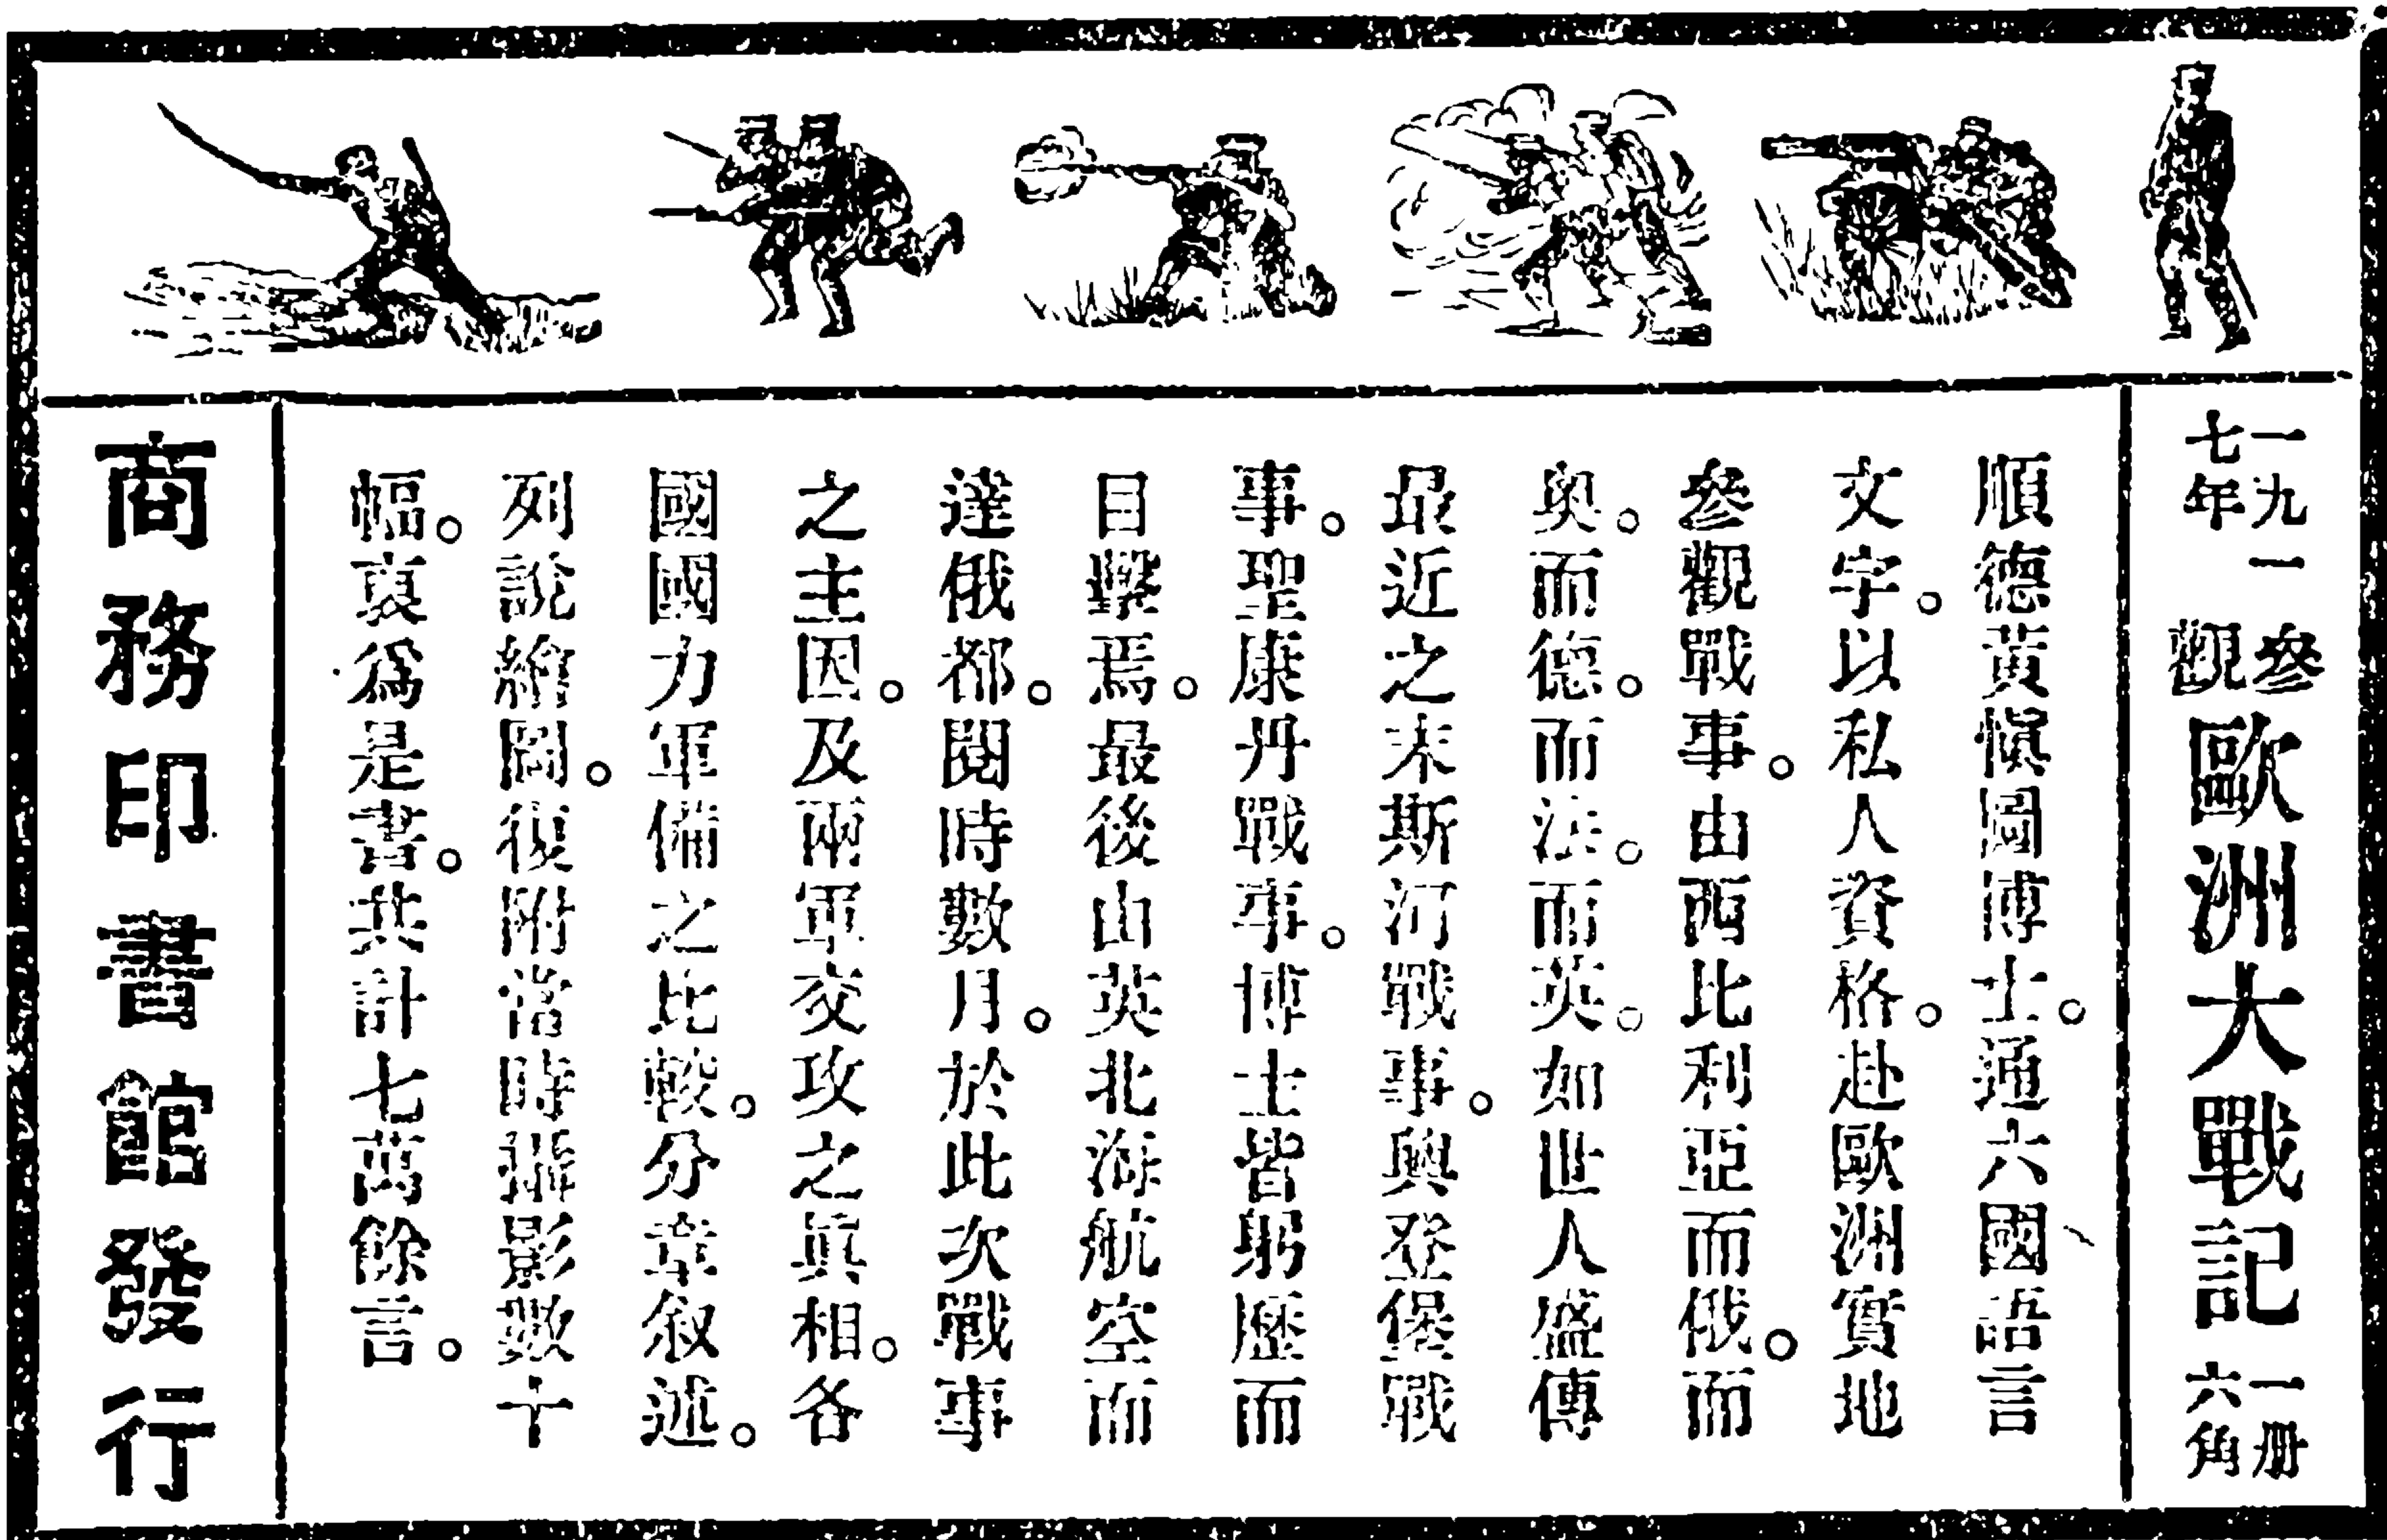 一九一七年
參觀
歐洲大戰記
一册六角
順德黃愼圖博士。通六國語言
文字。以私人資格。赴歐洲實地
參觀戰事。由西比利亞而俄。而
奥。而德。而法。而英。如世人盛傳
最近之末斯河戰事。與登堡戰
事。聖康丹戰事。博士皆躬歷而
目擊焉。最後由英北海航空而
達俄都。閱時數月。於此次戰事
之主因。及兩軍交攻之眞相。各
國國力軍備之比較。分章叙述。
列說繪圖。復附當時攝影數十
幅。裒爲是書。共計七萬餘言。
商務印書館發行